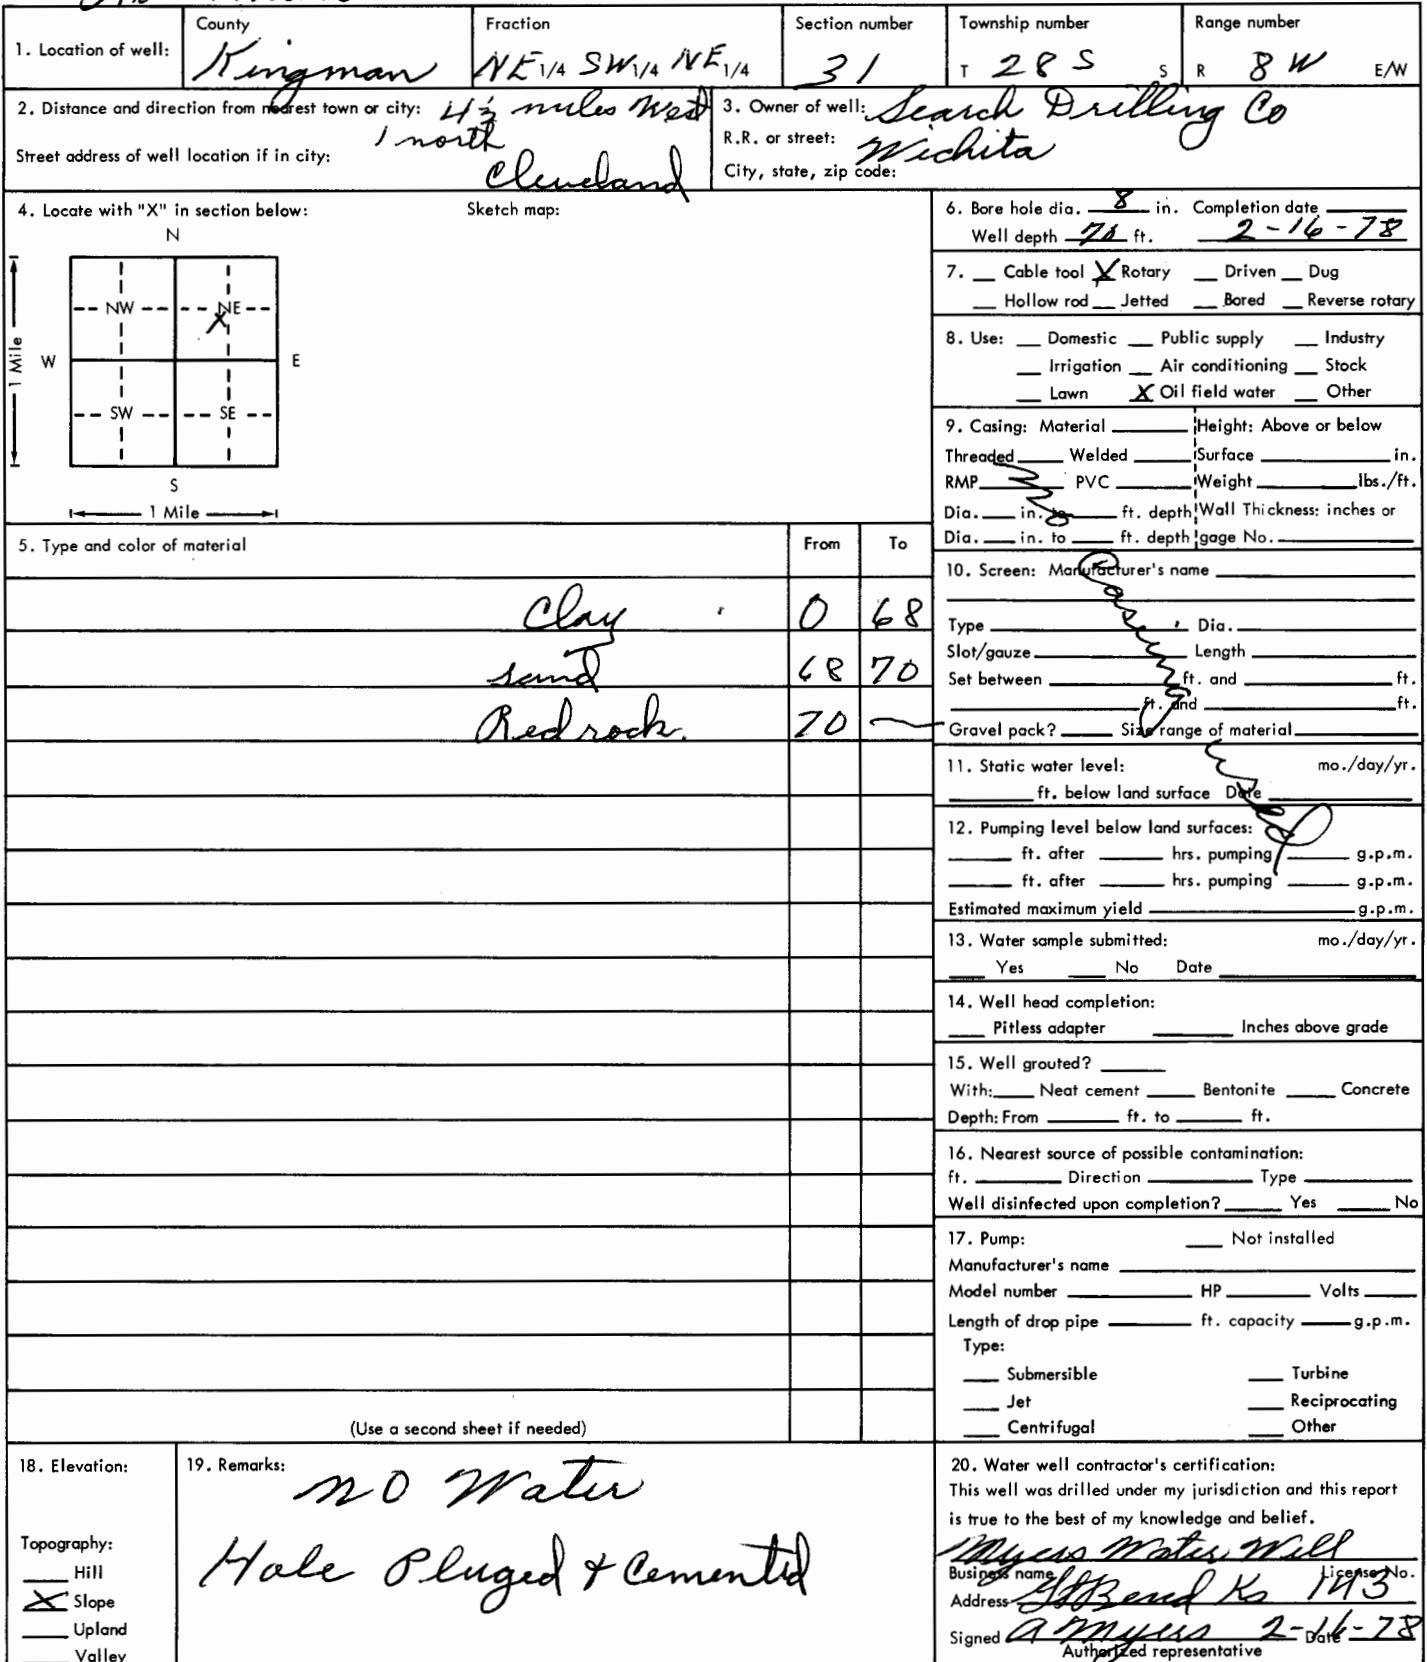 County
Fraction
Section number
Township number
Range number
1. Location of well:
Kingman
NE 1/4 SW 1/4 NE 1/4
31
T 28 S S
R 8 W E/W
2. Distance and direction from nearest town or city: 4½ miles West
1 north
Street address of well location if in city:
Cleveland
3. Owner of well: Search Drilling Co
R.R. or street:
Wichita
City, state, zip code:
4. Locate with "X" in section below:
Sketch map:
N
NW NE
X
W E
SW SE
S
1 Mile
1 Mile
5. Type and color of material From To
Clay 0 68
sand 68 70
Red rock. 70
(Use a second sheet if needed)
6. Bore hole dia. 8 in. Completion date
Well depth ft. 2-16-78
7. Cable tool X Rotary Driven Dug
Hollow rod Jetted Bored Reverse rotary
8. Use: Domestic Public supply Industry
Irrigation Air conditioning Stock
Lawn X Oil field water Other
9. Casing: Material Height: Above or below
Threaded Welded Surface in.
RMP PVC Weight lbs./ft.
Dia. in. to ft. depth Wall Thickness: inches or
Dia. in. to ft. depth gage No.
10. Screen: Manufacturer's name
Type Dia.
Slot/gauze Length
Set between ft. and ft.
ft. and ft.
Gravel pack? Size range of material
11. Static water level: mo./day/yr.
ft. below land surface Date
12. Pumping level below land surfaces:
ft. after hrs. pumping g.p.m.
ft. after hrs. pumping g.p.m.
Estimated maximum yield g.p.m.
13. Water sample submitted: mo./day/yr.
Yes No Date
14. Well head completion:
Pitless adapter Inches above grade
15. Well grouted?
With: Neat cement Bentonite Concrete
Depth: From ft. to ft.
16. Nearest source of possible contamination:
ft. Direction Type
Well disinfected upon completion? Yes No
17. Pump: Not installed
Manufacturer's name
Model number HP Volts
Length of drop pipe ft. capacity g.p.m.
Type:
Submersible Turbine
Jet Reciprocating
Centrifugal Other
18. Elevation:
Topography:
Hill
X Slope
Upland
Valley
19. Remarks: no Water
Hole Pluged & Cemented
20. Water well contractor's certification:
This well was drilled under my jurisdiction and this report
is true to the best of my knowledge and belief.
Myers Water Well
Business name License No.
Address Gt Bend Ks 143
Signed A Myers 2-16-78 Date
Authorized representative